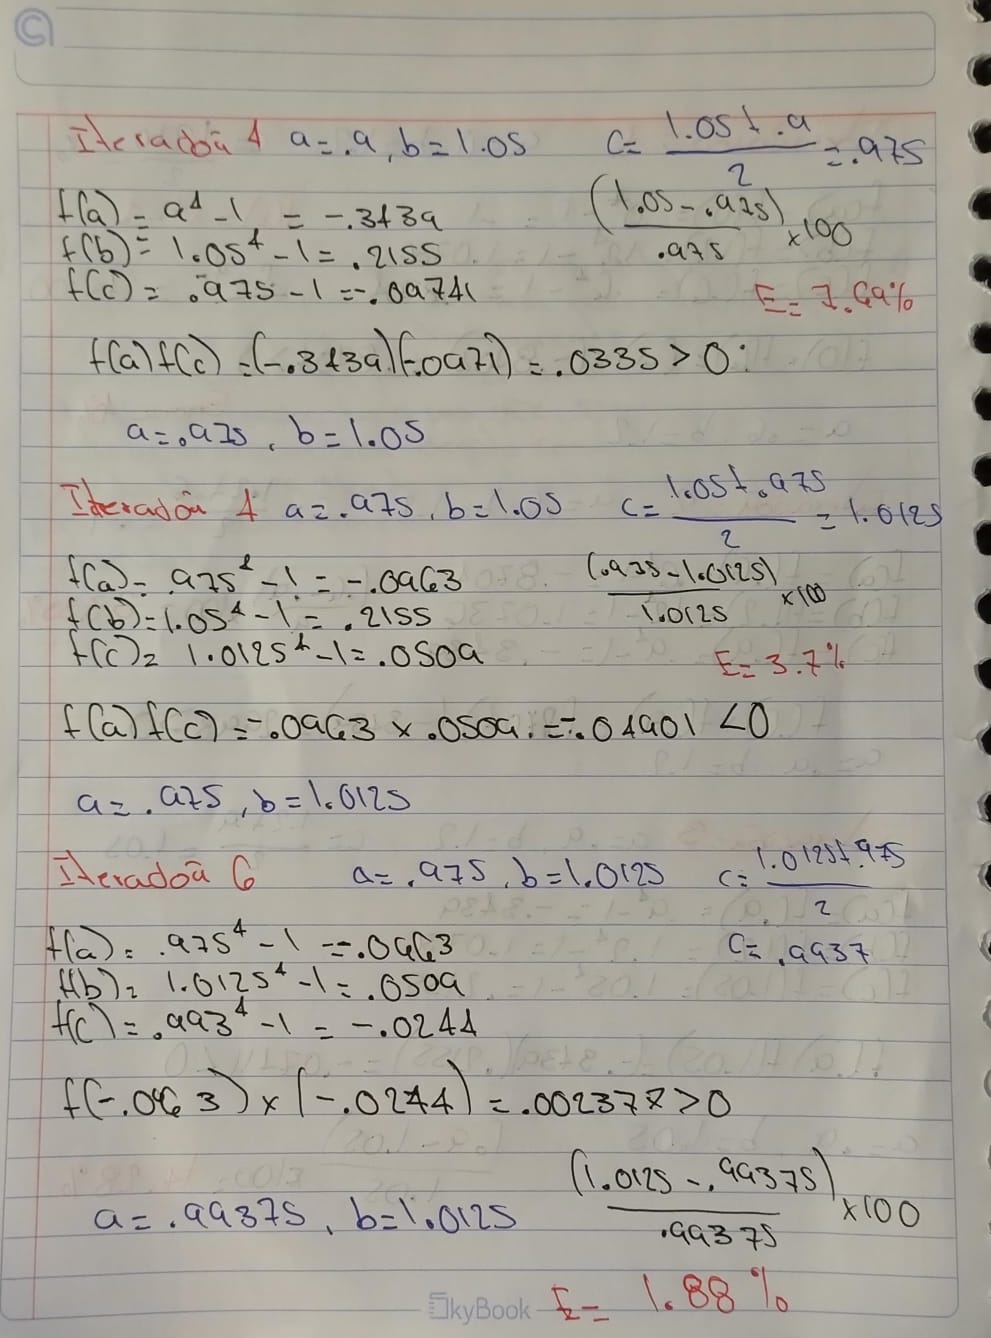 Iteración 4 a=.9, b=1.05 c= (1.05+.9)/2 = .975
f(a)= .9^4-1 = -.3439 (1.05-.975)/.975 x100
f(b)= 1.05^4-1= .2155
f(c)= .975-1=-.0974 E= 7.69%
f(a)f(c)=(-.3439)(-.0971)=.0335>0
a=.975, b=1.05
Iteración 4 a=.975, b=1.05 c= (1.05+.975)/2 = 1.0125
f(a)= .975^4-1=-.0963 (.975-1.0125)/1.0125 x100
f(b)=1.05^4-1=.2155
f(c)= 1.0125^4-1=.0509 E= 3.7%
f(a)f(c)=-.0963 x .0509=-.04901 <0
a=.975, b=1.0125
Iteración 6 a=.975, b=1.0125 c= (1.0125+.975)/2
f(a)= .975^4-1=-.0963 c= .9937
f(b)= 1.0125^4-1=.0509
f(c)=.993^4-1=-.0244
f(-.0963)x(-.0244)=.002377>0
a=.99375, b=1.0125 (1.0125-.99375)/.99375 x100
SkyBook E= 1.88%